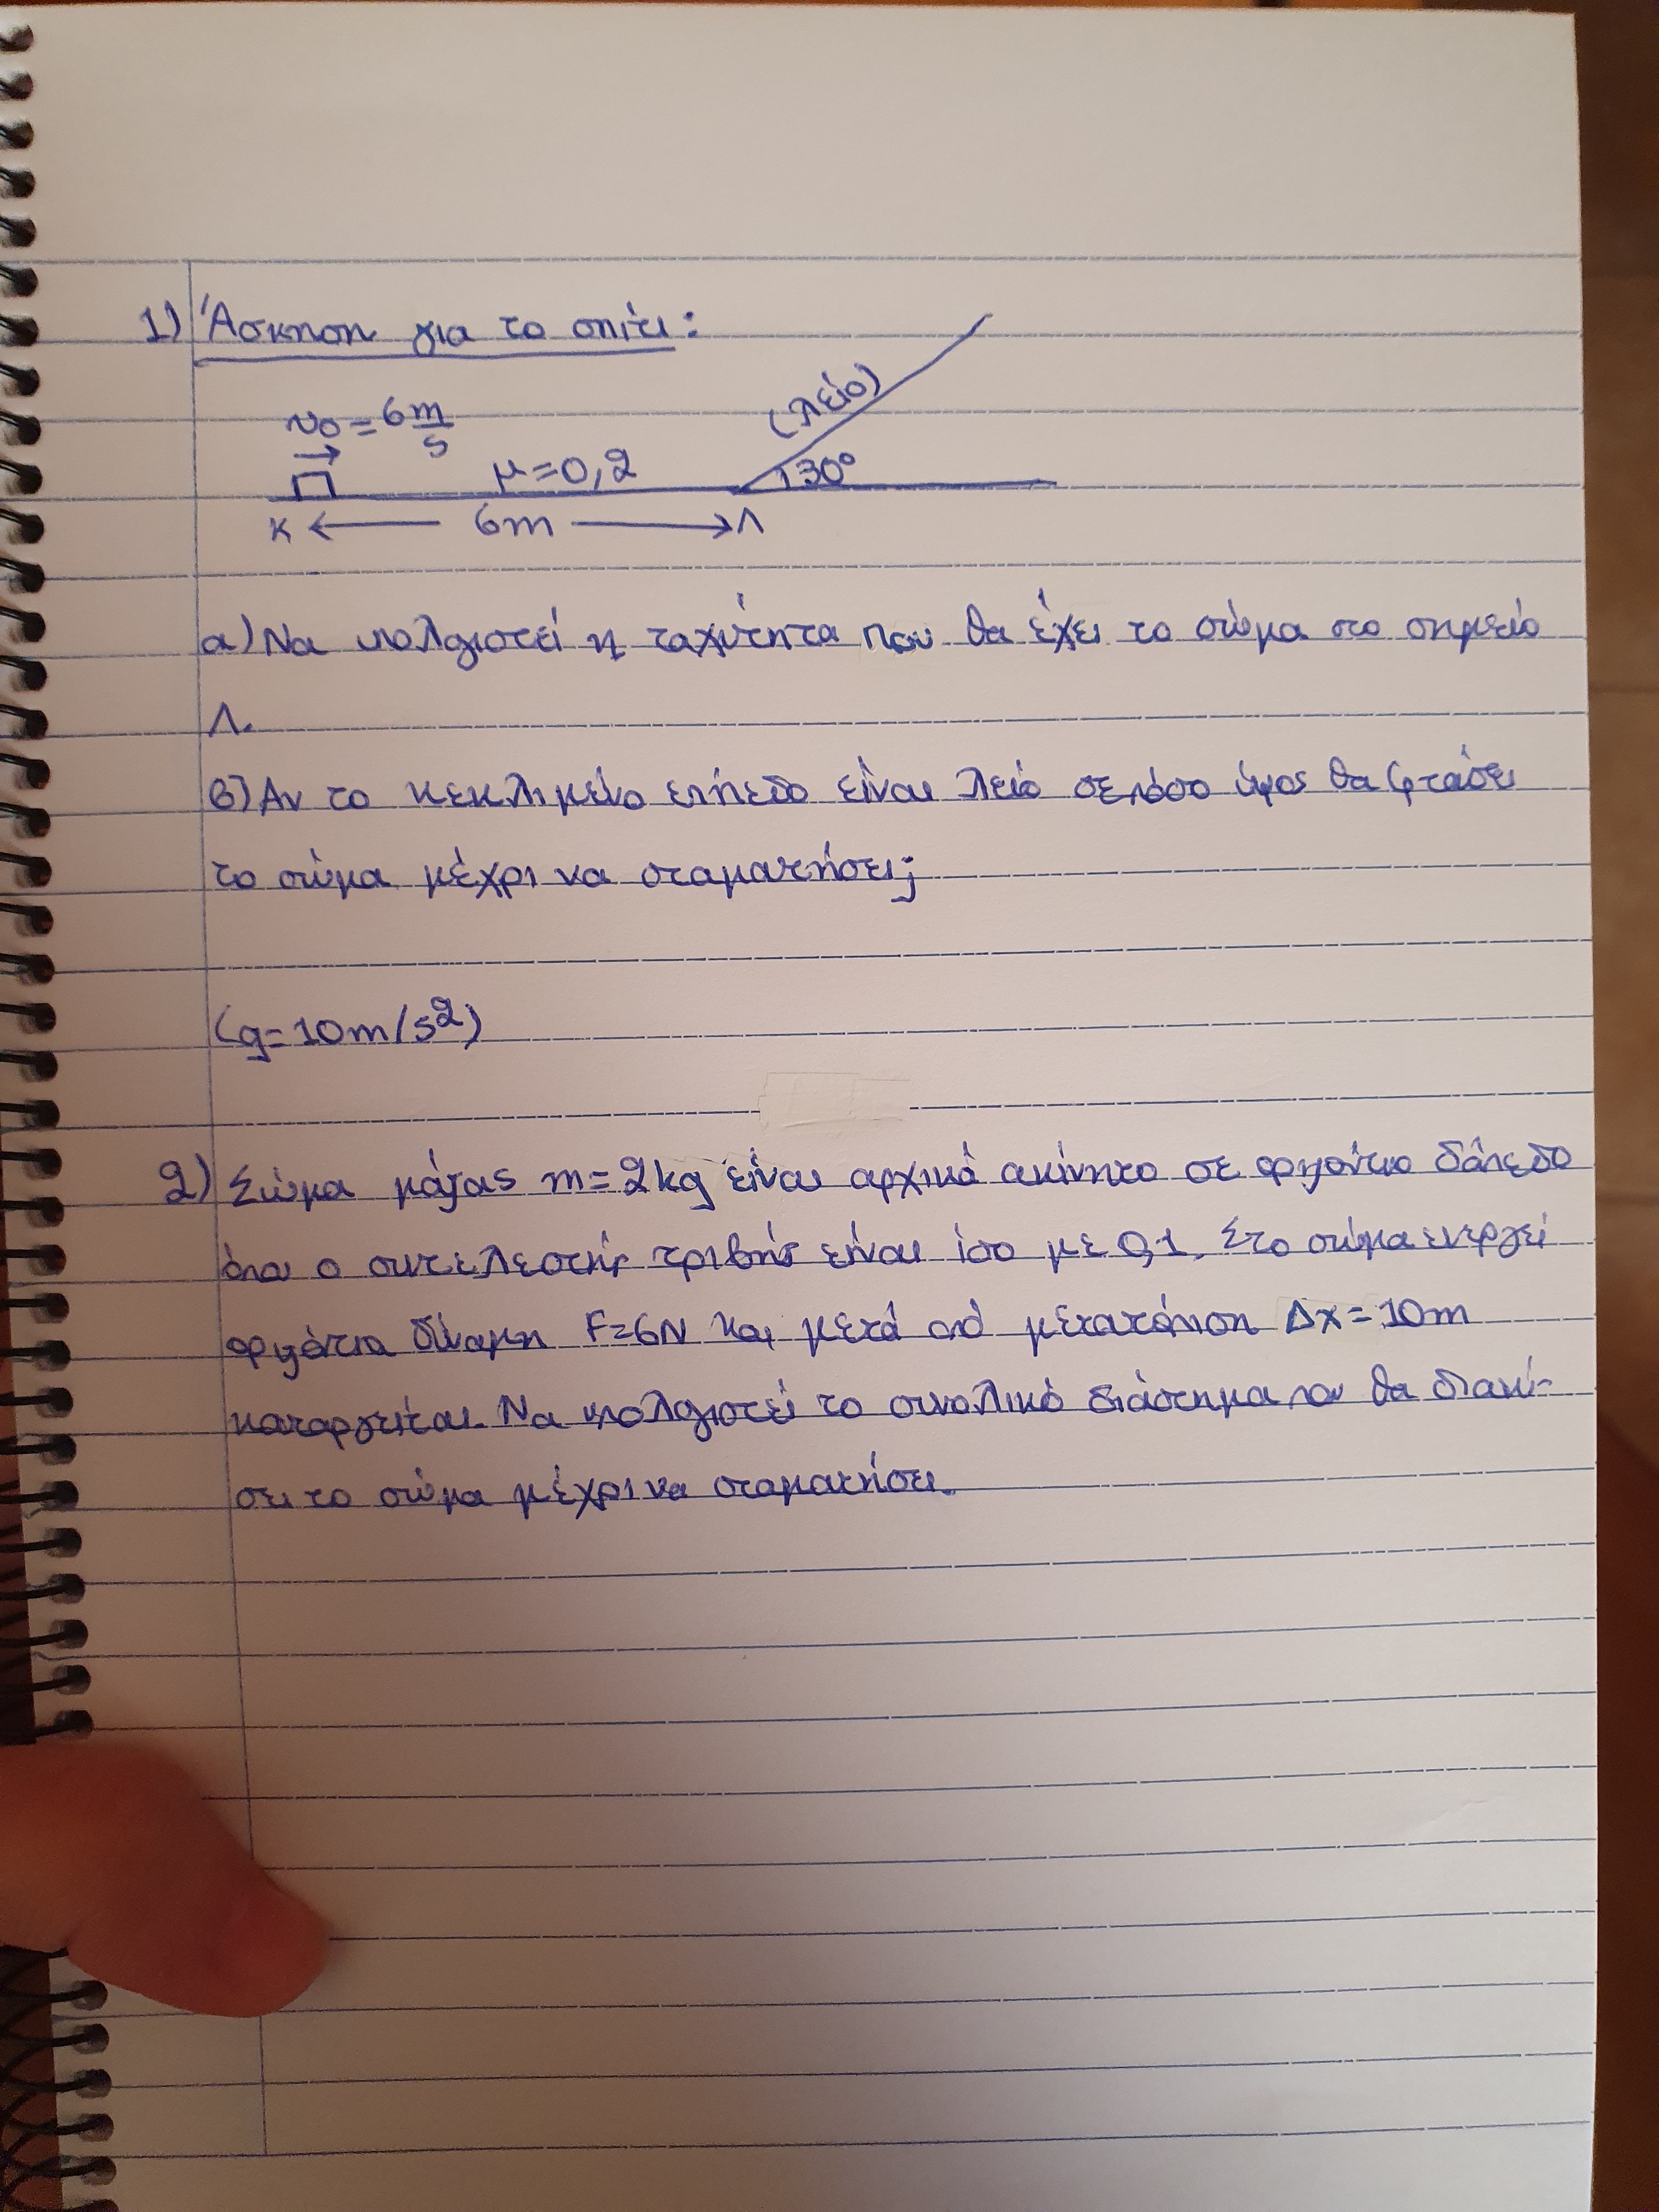 1) Άσκηση για το σπίτι:
υ0 = 6 m/s
(λείο)
μ=0,2
30°
Κ ← 6m → Λ
α) Να υπολογιστεί η ταχύτητα που θα έχει το σώμα στο σημείο
Λ.
β) Αν το κεκλιμένο επίπεδο είναι λείο σε πόσο ύψος θα φτάσει
το σώμα μέχρι να σταματήσει;
(g=10m/s²)
2) Σώμα μάζας m=2kg είναι αρχικά ακίνητο σε οριζόντιο δάπεδο
όπου ο συντελεστής τριβής είναι ίσο με 0,1. Στο σώμα ενεργεί
οριζόντια δύναμη F=6N και μετά από μετατόπιση Δx=10m
καταργείται. Να υπολογιστεί το συνολικό διάστημα που θα διανύ-
σει το σώμα μέχρι να σταματήσει.